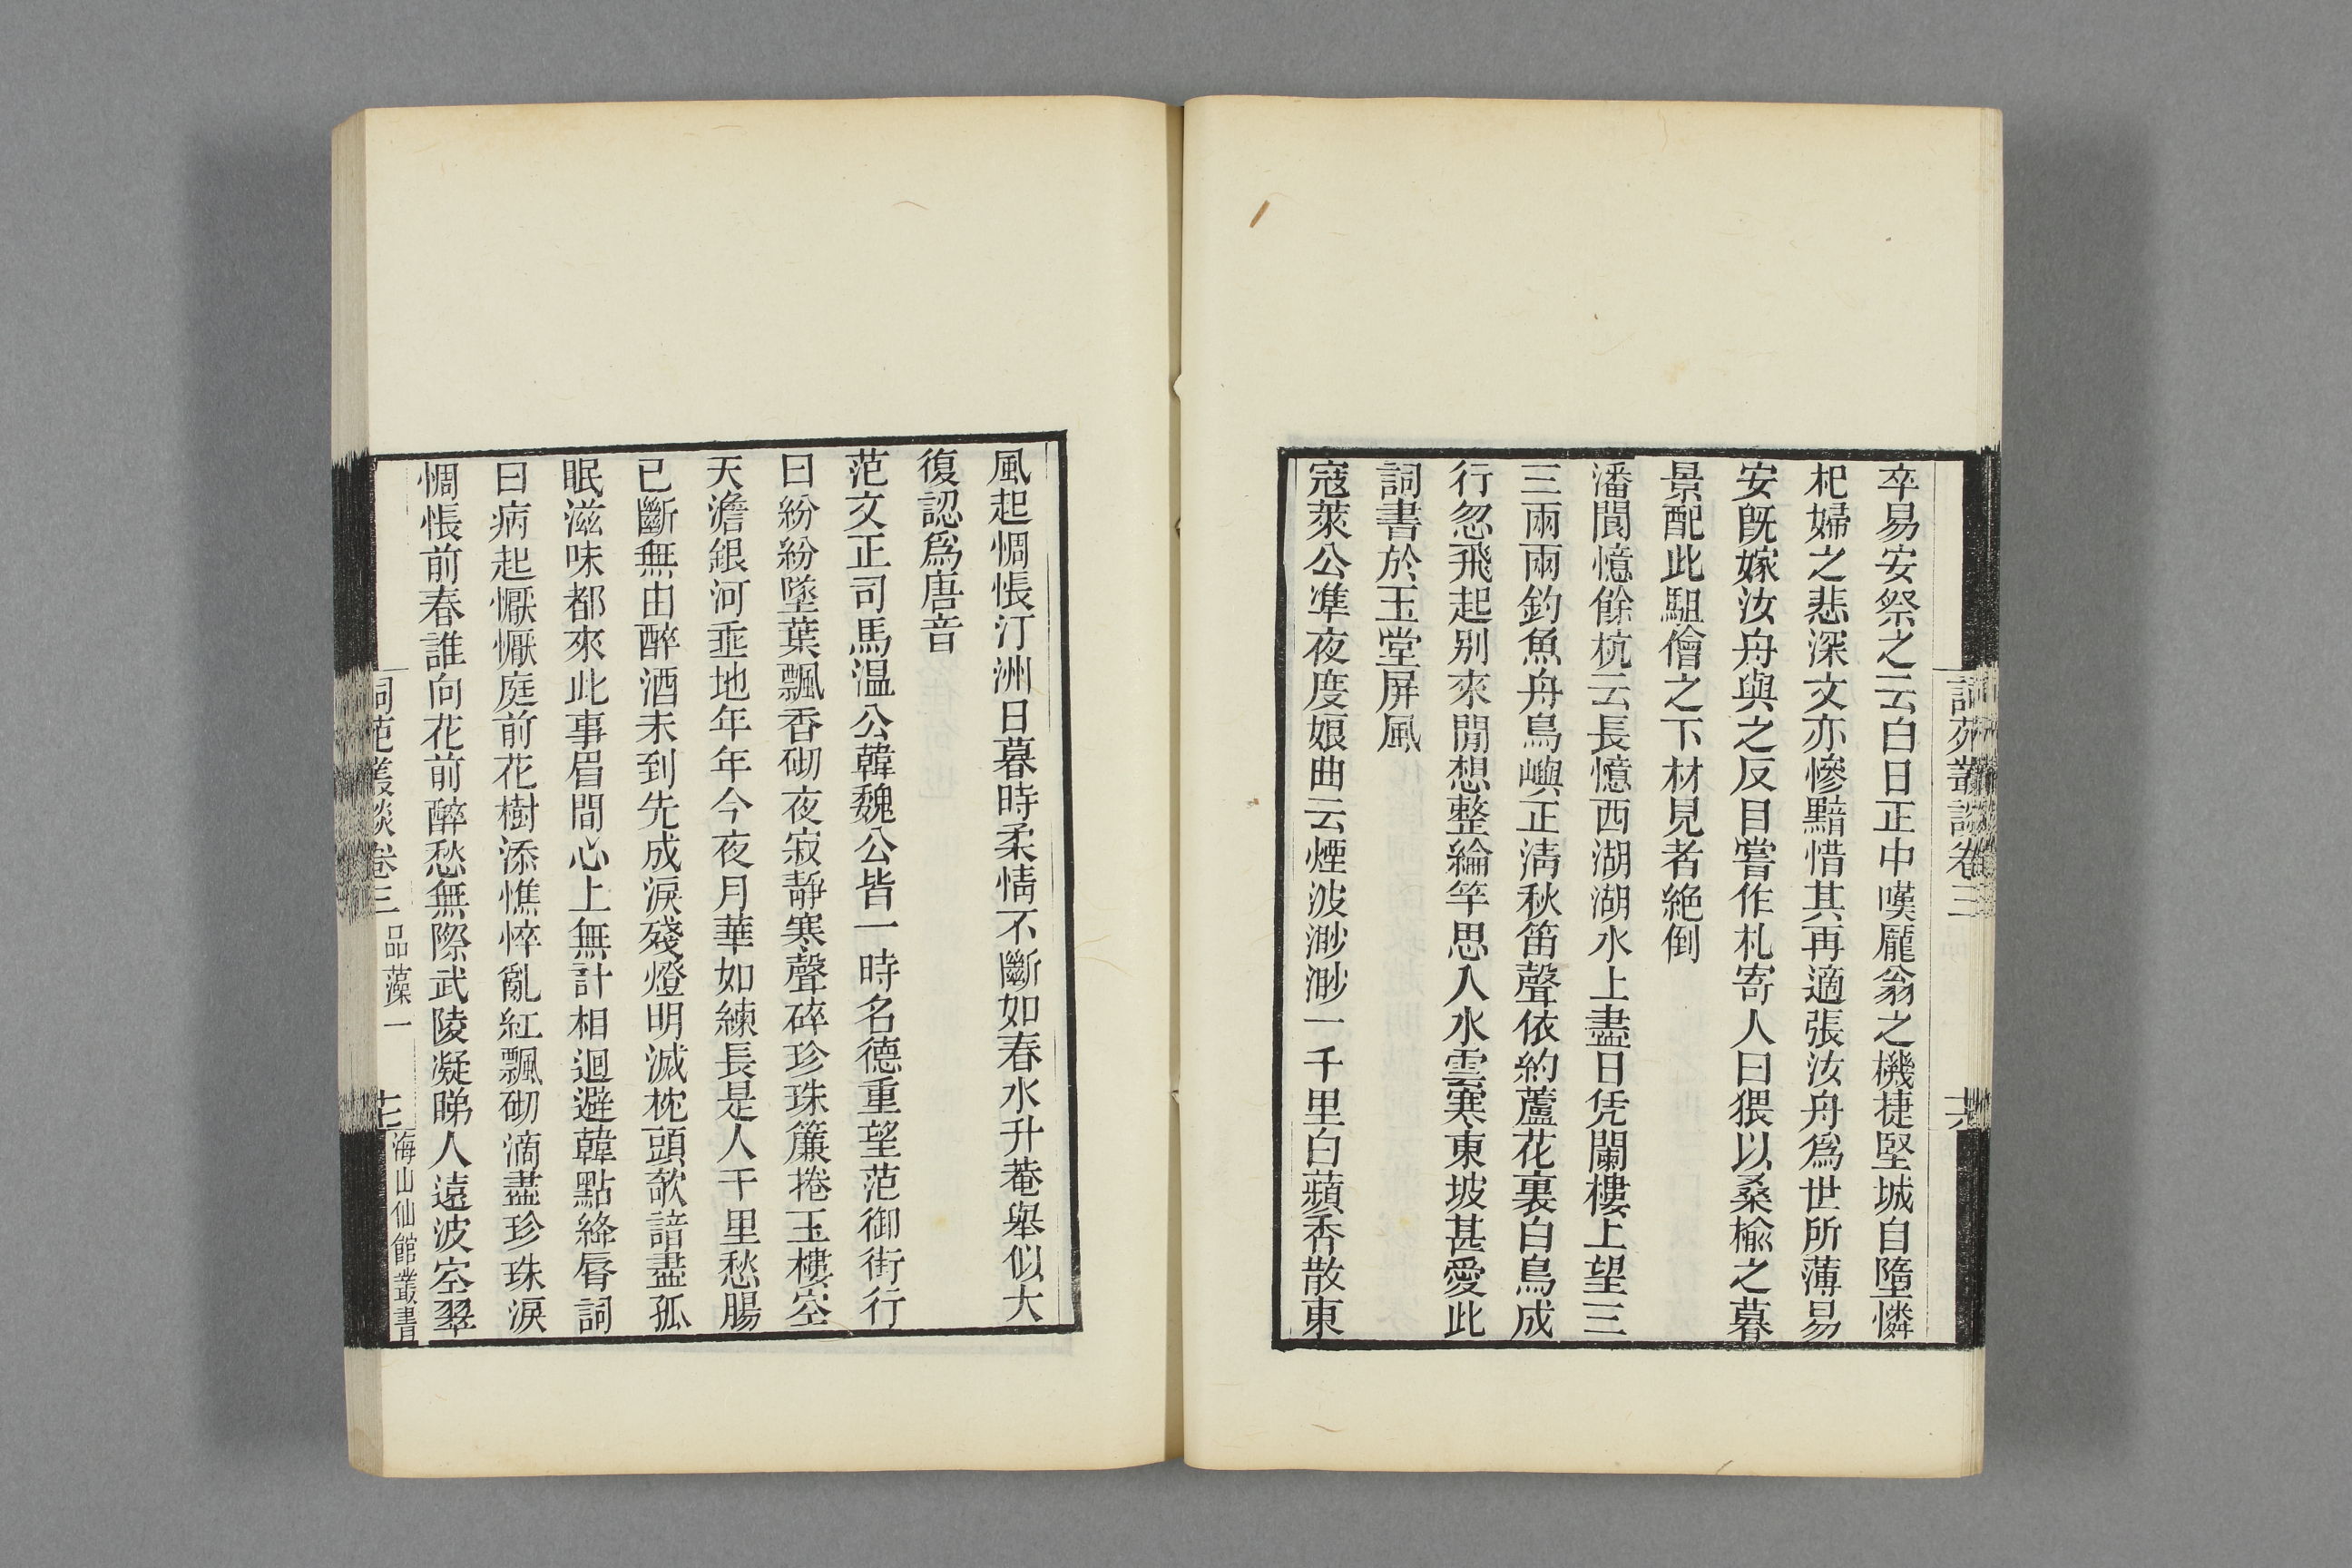 詞苑叢談卷三
卒易安祭之云白日正中嘆龐翁之機捷堅城自隳憐
杞婦之悲深文亦慘黯惜其再適張汝舟爲世所薄易
安旣嫁汝舟與之反目嘗作札寄人曰猥以桑榆之暮
景配此駔儈之下材見者絶倒
潘閬憶餘杭云長憶西湖湖水上盡日凭闌樓上望三
三兩兩釣魚舟鳥嶼正淸秋笛聲依約蘆花裏白鳥成
行忽飛起别來閒想整綸竿思入水雲寒東坡甚愛此
詞書於玉堂屏風
寇萊公準夜度娘曲云煙波渺渺一千里白蘋香散東
風起惆悵汀洲日暮時柔情不斷如春水升菴舉似大
復認爲唐音
范文正司馬溫公韓魏公皆一時名德重望范御街行
曰紛紛墜葉飄香砌夜寂靜寒聲碎珍珠簾捲玉樓空
天澹銀河垂地年年今夜月華如練長是人千里愁腸
已斷無由醉酒未到先成淚殘燈明滅枕頭欹諳盡孤
眠滋味都來此事眉間心上無計相迴避韓點絳脣詞
曰病起懨懨庭前花樹添憔悴亂紅飄砌滴盡珍珠淚
惆悵前春誰向花前醉愁無際武陵凝睇人遠波空翠
詞苑叢談卷三 品藻一
海山仙館叢書